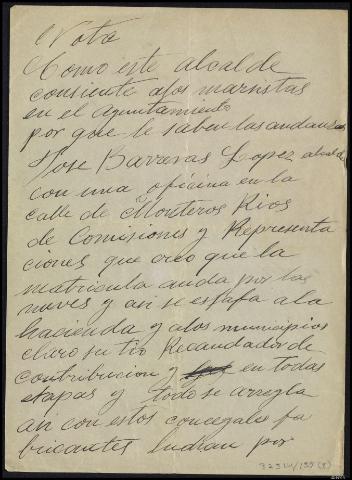 Nota
Como este alcalde
consiente alos marxistas
en el Ayuntamiento
por que le saben las andanzas
Jose Barreras Lopez alcalde
con una oficina en la
calle de Monteros Rios
de Comisiones y Representa
ciones que creo que la
matricula anda por las
nuves y asi se estafa a la
hacienda y alos municipios
claro su tio Recaudador de
Contribucion y en todas
etapas y todo se arregla
asi con estos concegales fa
bricantes Ludian por
323 W/159 (8)